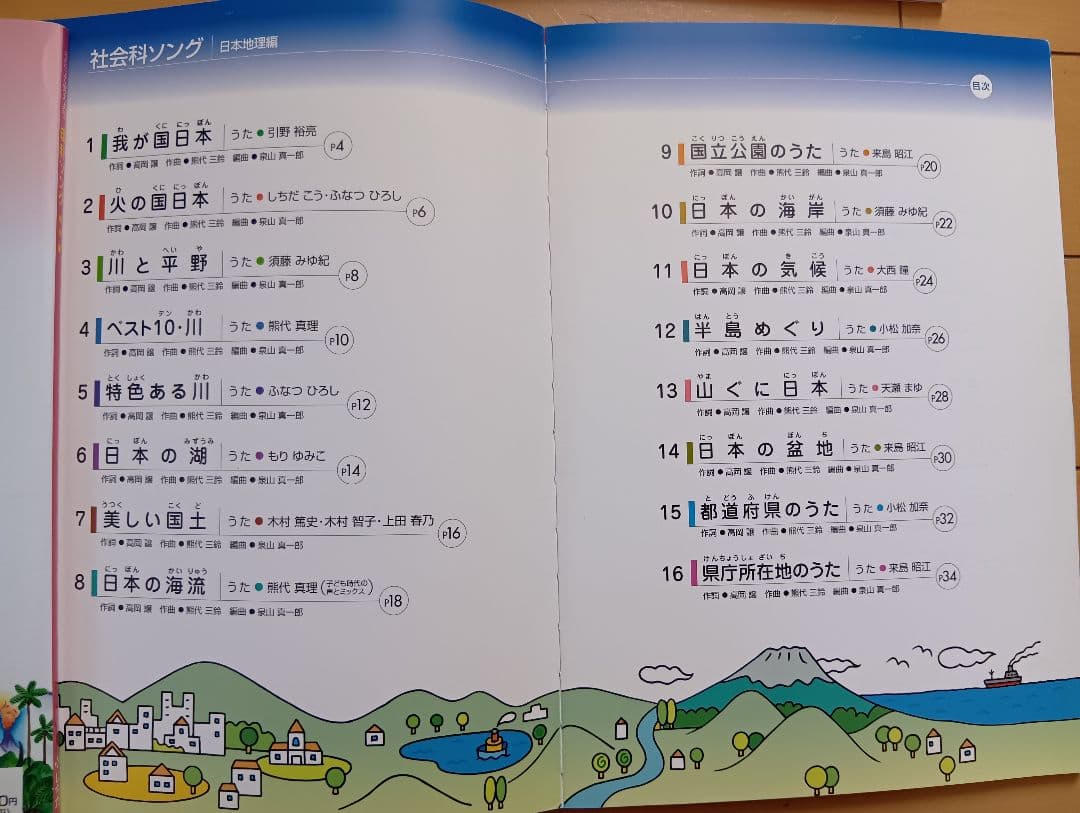 社会科ソング 日本地理編
1 我が国日本 うた●引野 裕亮 P4
作詞●高岡 譲 作曲●熊代 三鈴 編曲●泉山 真一郎
2 火の国日本 うた●しちだ こう・ふなつ ひろし P6
作詞●高岡 譲 作曲●熊代 三鈴 編曲●泉山 真一郎
3 川と平野 うた●須藤 みゆ紀 P8
作詞●高岡 譲 作曲●熊代 三鈴 編曲●泉山 真一郎
4 ベスト10・川 うた●熊代 真理 P10
作詞●高岡 譲 作曲●熊代 三鈴 編曲●泉山 真一郎
5 特色ある川 うた●ふなつ ひろし P12
作詞●高岡 譲 作曲●熊代 三鈴 編曲●泉山 真一郎
6 日本の湖 うた●もり ゆみこ P14
作詞●高岡 譲 作曲●熊代 三鈴 編曲●泉山 真一郎
7 美しい国土 うた●木村 篤史・木村 智子・上田 春乃 P16
作詞●高岡 譲 作曲●熊代 三鈴 編曲●泉山 真一郎
8 日本の海流 うた●熊代 真理(子ども時代の声とミックス) P18
作詞●高岡 譲 作曲●熊代 三鈴 編曲●泉山 真一郎
目次
9 国立公園のうた うた●来島 昭江 P20
作詞●高岡 譲 作曲●熊代 三鈴 編曲●泉山 真一郎
10 日本の海岸 うた●須藤 みゆ紀 P22
作詞●高岡 譲 作曲●熊代 三鈴 編曲●泉山 真一郎
11 日本の気候 うた●大西 瞳 P24
作詞●高岡 譲 作曲●熊代 三鈴 編曲●泉山 真一郎
12 半島めぐり うた●小松 加奈 P26
作詞●高岡 譲 作曲●熊代 三鈴 編曲●泉山 真一郎
13 山ぐに日本 うた●天瀬 まゆ P28
作詞●高岡 譲 作曲●熊代 三鈴 編曲●泉山 真一郎
14 日本の盆地 うた●来島 昭江 P30
作詞●高岡 譲 作曲●熊代 三鈴 編曲●泉山 真一郎
15 都道府県のうた うた●小松 加奈 P32
作詞●高岡 譲 作曲●熊代 三鈴 編曲●泉山 真一郎
16 県庁所在地のうた うた●来島 昭江 P34
作詞●高岡 譲 作曲●熊代 三鈴 編曲●泉山 真一郎
0円